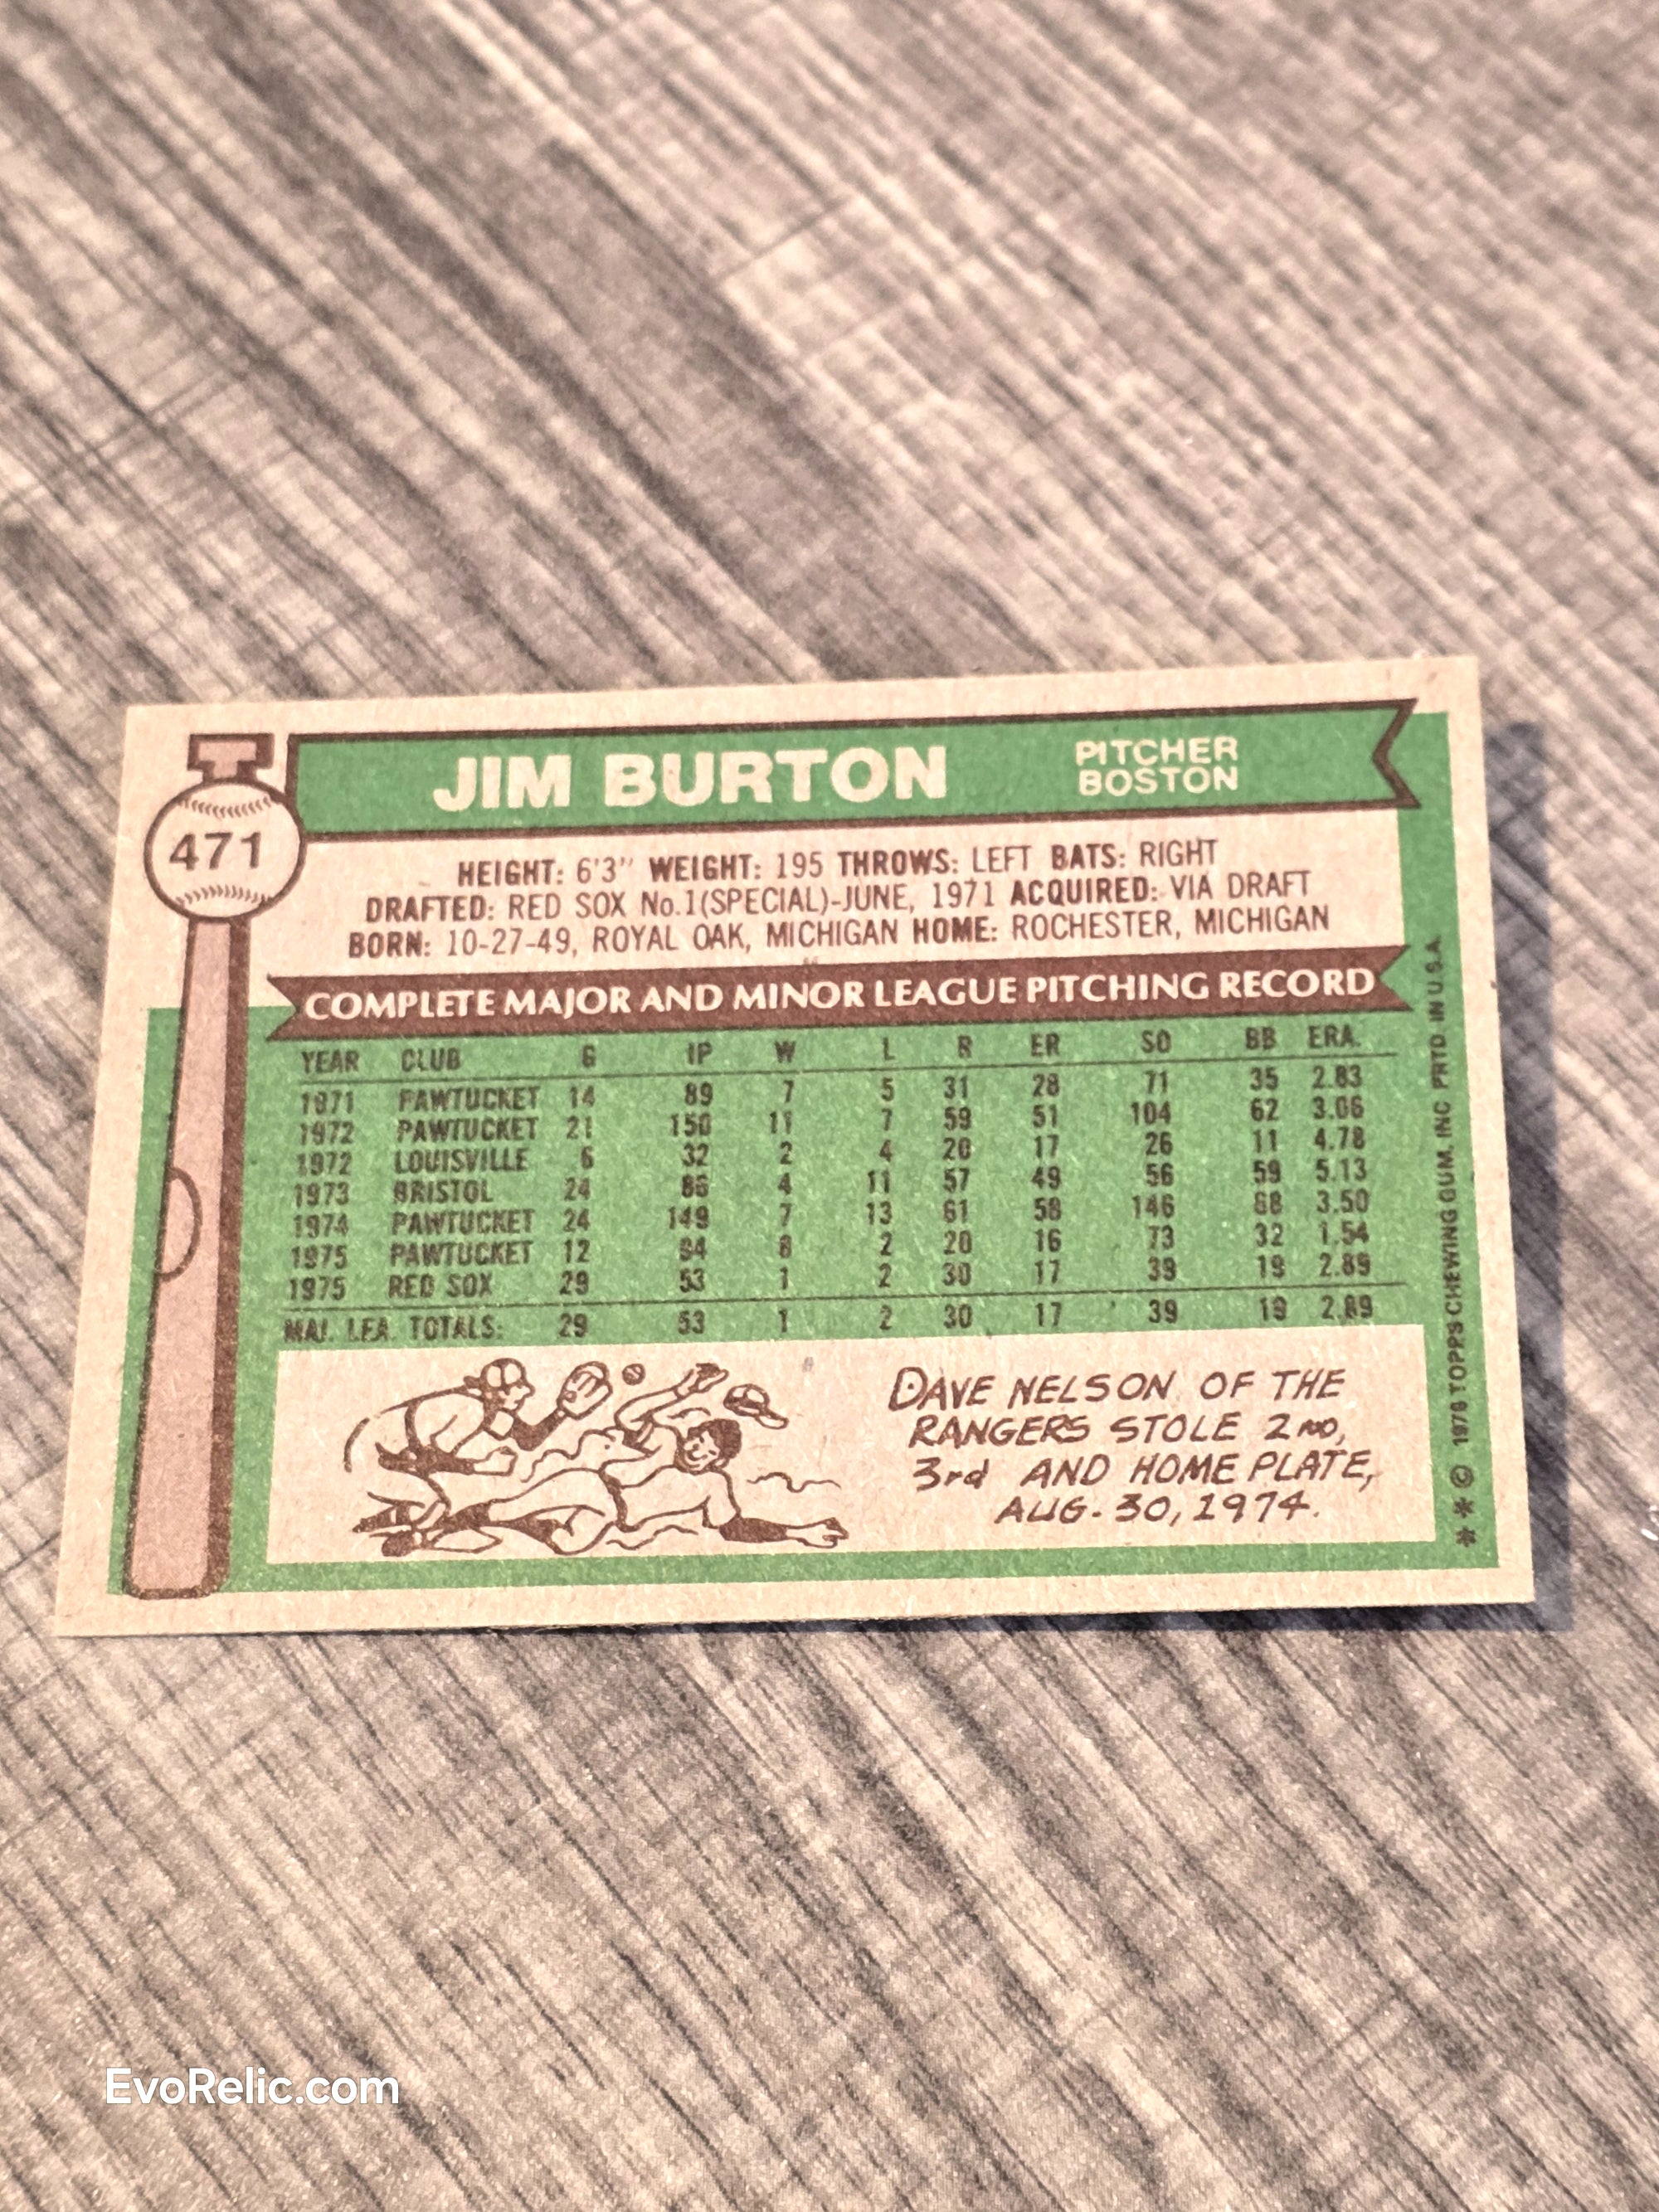 JIM BURTON
PITCHER
BOSTON
471
HEIGHT: 6'3" WEIGHT: 195 THROWS: LEFT BATS: RIGHT
DRAFTED: RED SOX No.1(SPECIAL)-JUNE, 1971 ACQUIRED: VIA DRAFT
BORN: 10-27-49, ROYAL OAK, MICHIGAN HOME: ROCHESTER, MICHIGAN
COMPLETE MAJOR AND MINOR LEAGUE PITCHING RECORD
YEAR CLUB G IP W L R ER SO BB ERA.
1971 PAWTUCKET 14 89 7 5 31 28 71 35 2.83
1972 PAWTUCKET 21 150 11 7 59 51 104 62 3.06
1972 LOUISVILLE 6 32 2 4 20 17 26 11 4.78
1973 BRISTOL 24 86 4 11 57 49 56 59 5.13
1974 PAWTUCKET 24 149 7 13 61 58 146 68 3.50
1975 PAWTUCKET 12 94 8 2 20 16 73 32 1.54
1975 RED SOX 29 53 1 2 30 17 39 19 2.89
MAJ. LEA. TOTALS: 29 53 1 2 30 17 39 19 2.89
DAVE NELSON OF THE
RANGERS STOLE 2ND,
3rd AND HOME PLATE,
AUG. 30, 1974.
** © 1976 TOPPS CHEWING GUM, INC PRTD IN U.S.A.
EvoRelic.com